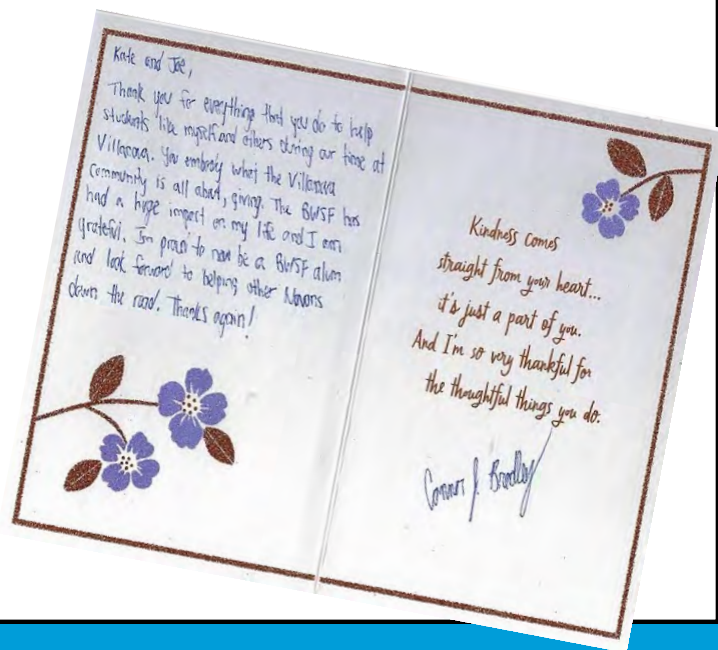 Kate and Joe,
Thank you for everything that you do to help
students like myself and others during our time at
Villanova. You embody what the Villanova
community is all about, giving. The BWSF has
had a huge impact on my life and I am
grateful. I'm proud to now be a BWSF alum
and look forward to helping other Novans
down the road. Thanks again!
Kindness comes
straight from your heart...
it's just a part of you.
And I'm so very thankful for
the thoughtful things you do.
Connor J. Bradley